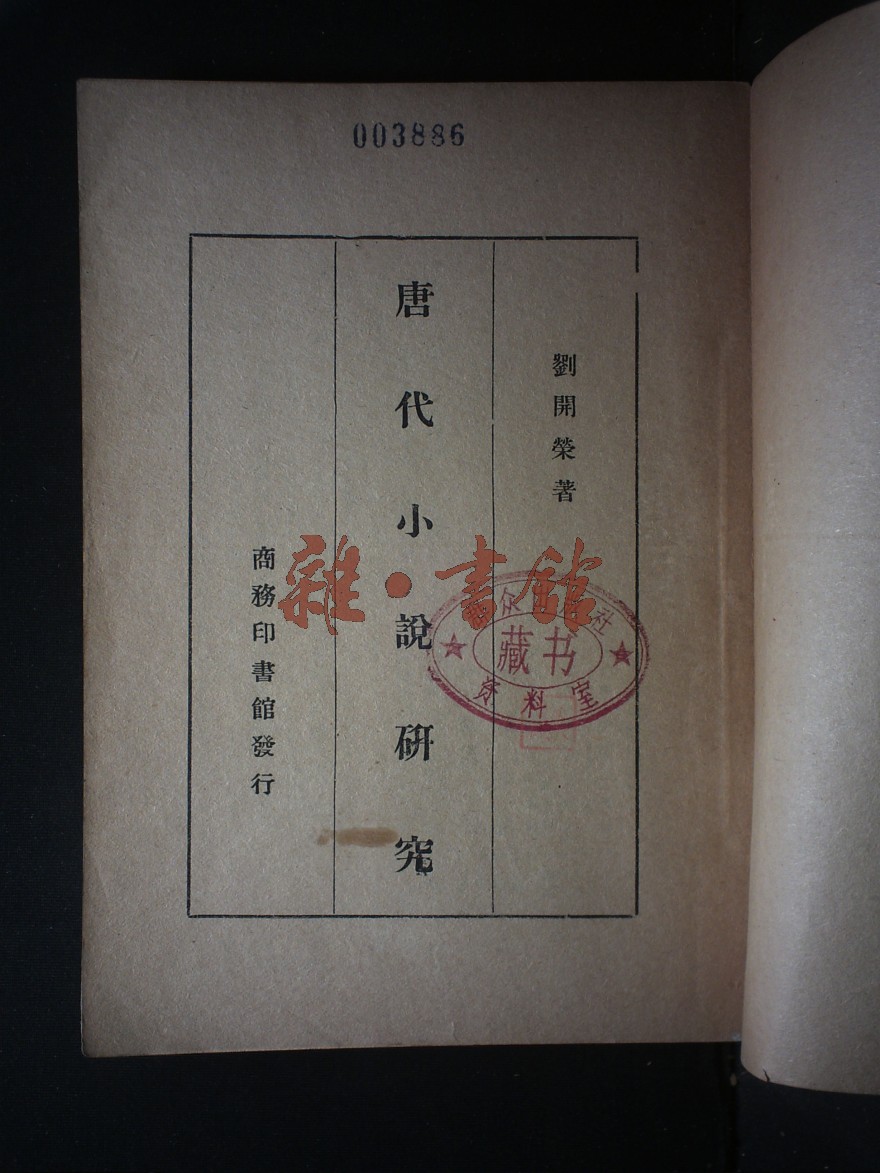 003886
劉開榮著
唐代小說研究
商務印書館發行
雜·書館
众 社
藏书
资料室